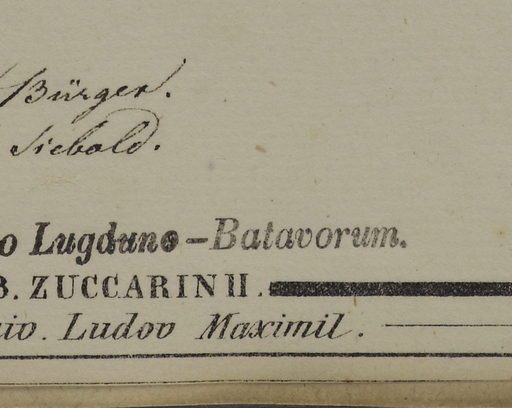 Bürger.
Siebold.
o Lugduno-Batavorum.
B. ZUCCARINII.
Ludov Maximil.